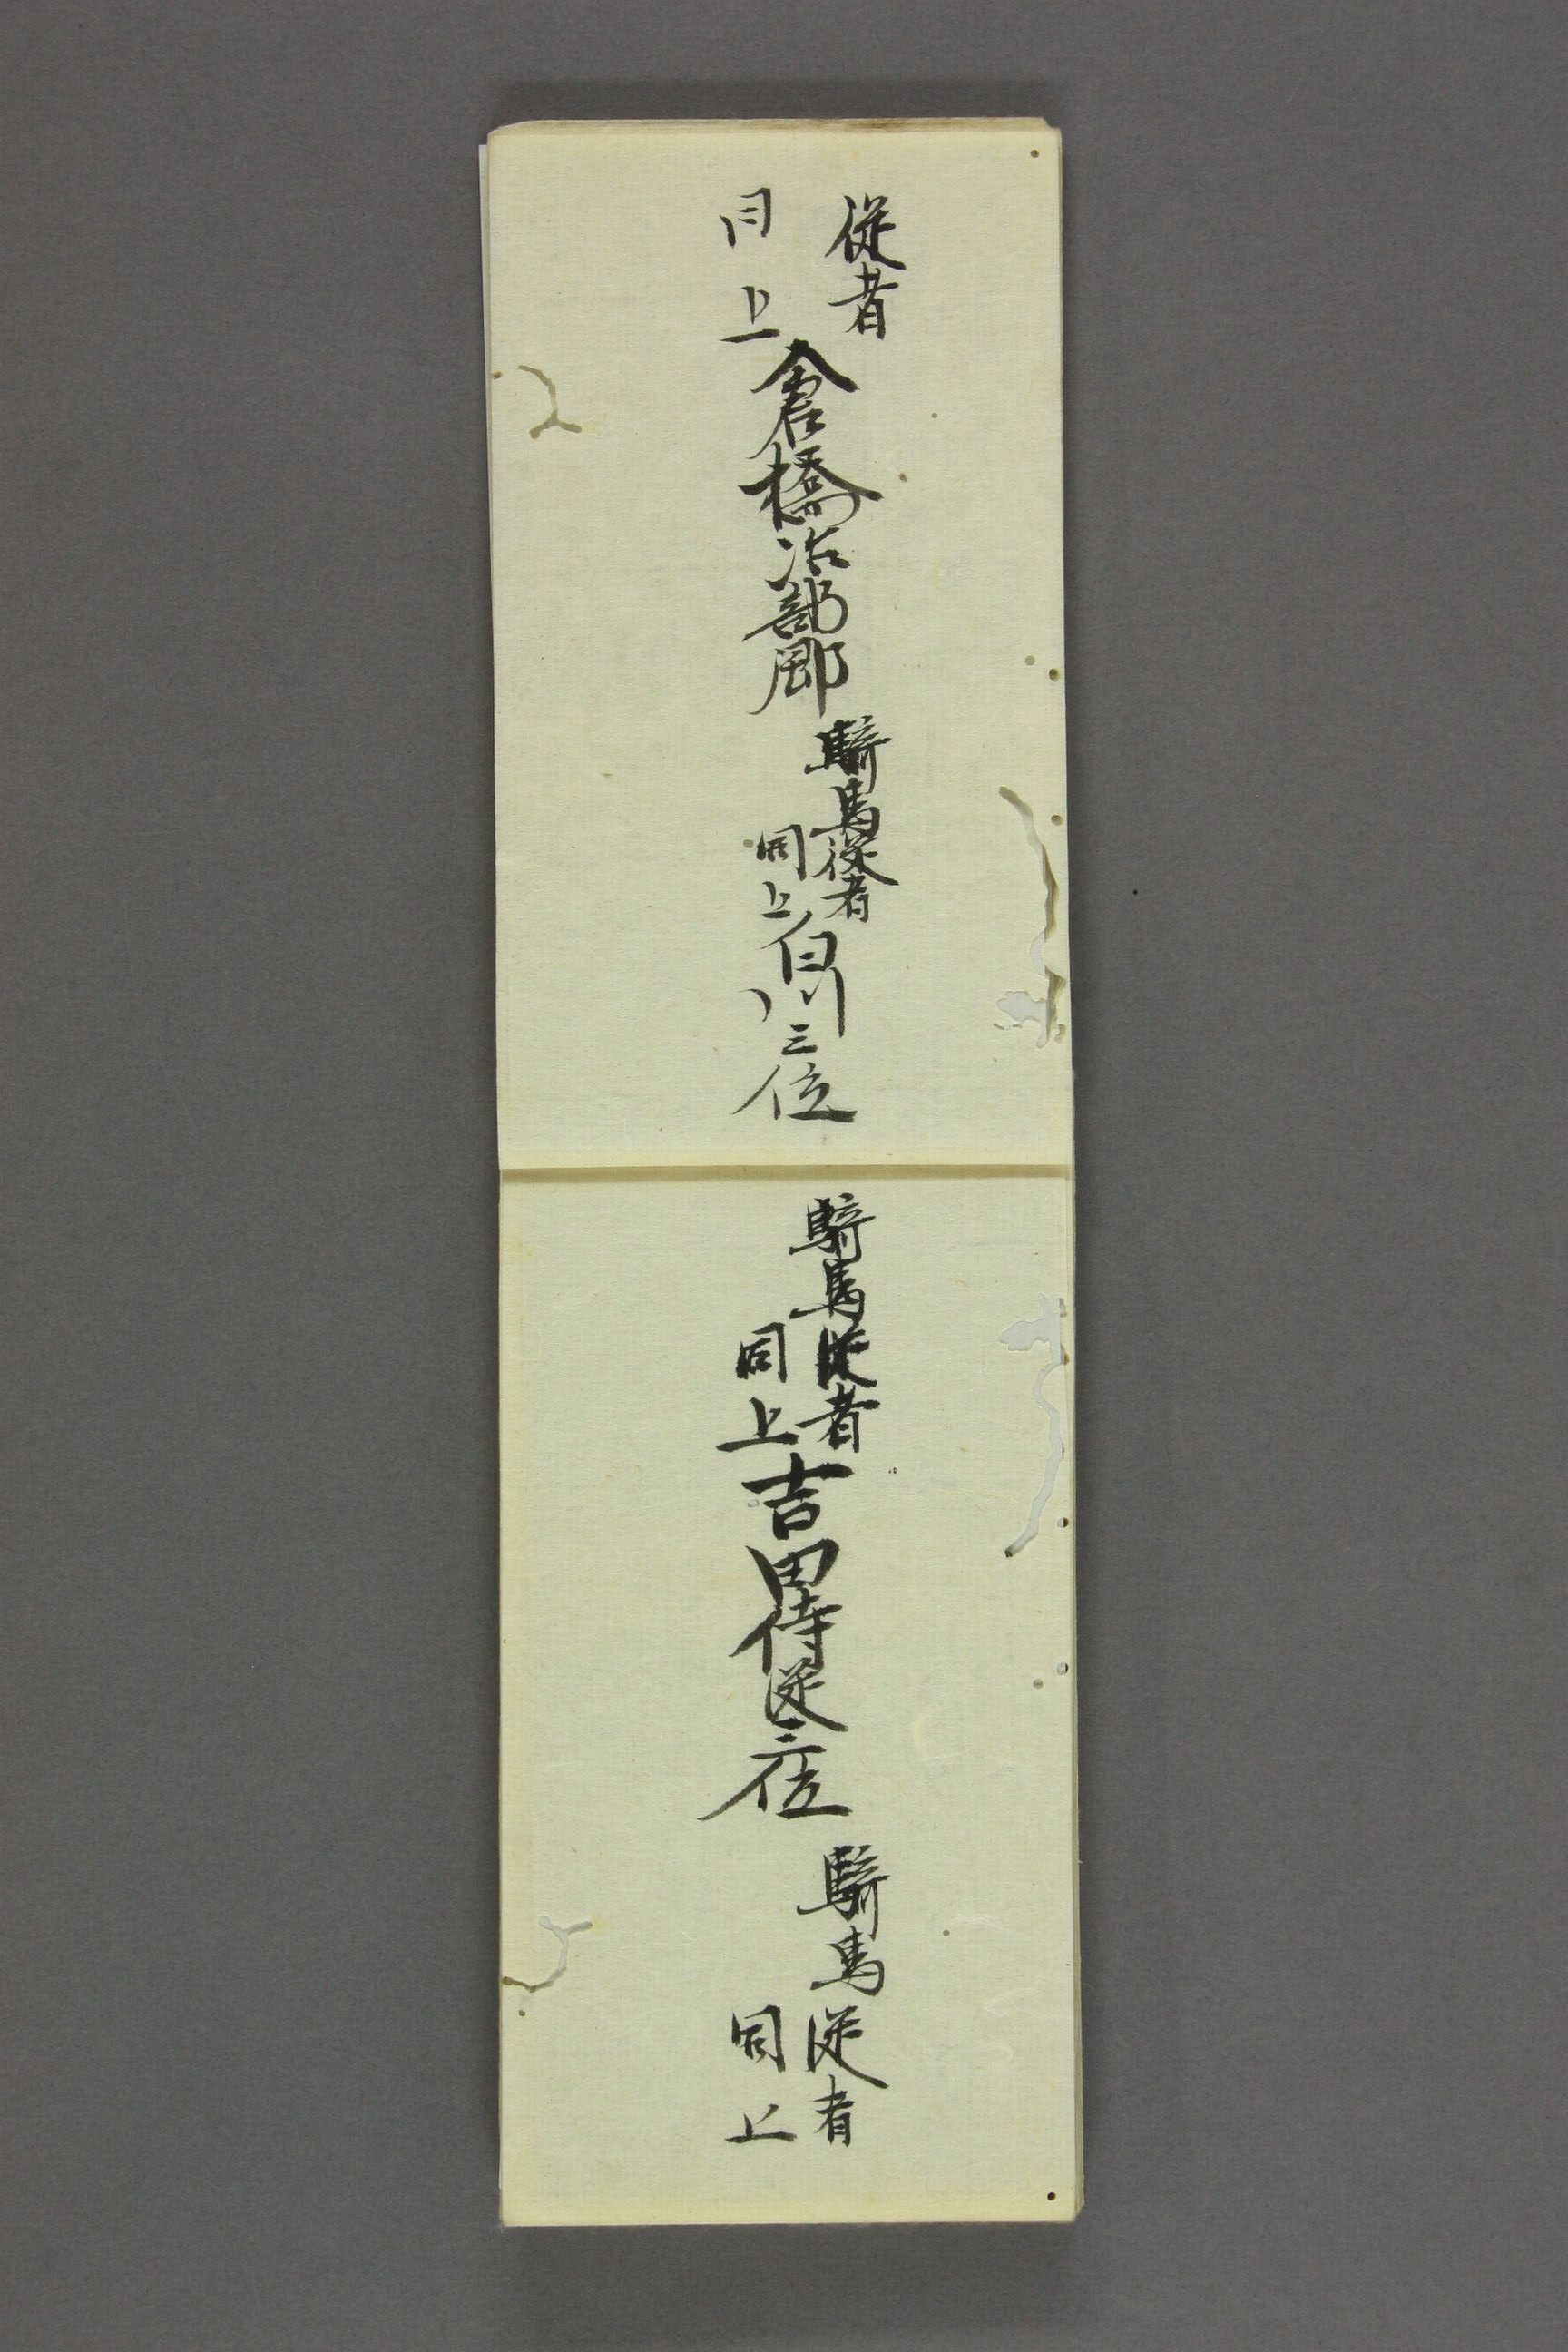 従者
同上
倉橋治部卿
騎馬従者
同上
白川三位
騎馬従者
同上
吉田侍従三位
騎馬従者
同上